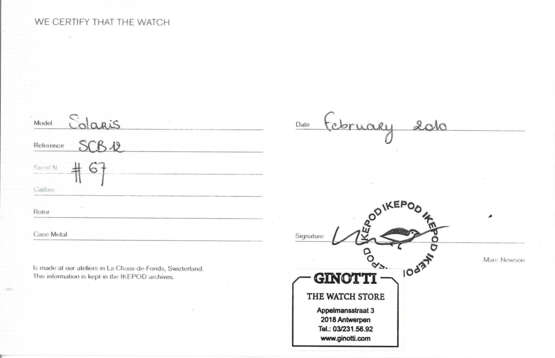 WE CERTIFY THAT THE WATCH
Model Solaris
Reference SCB 12
Serial N. # 67
Calibre
Rotor
Case Metal
Is made at our ateliers in La Chaux de Fonds, Switzerland.
This information is kept in the IKEPOD archives.
Date February 2010
Signature
IKEPOD IKEPOD IKEPOD IKEPOD
Marc Newson
GINOTTI
THE WATCH STORE
Appelmansstraat 3
2018 Antwerpen
Tel.: 03/231.56.92
www.ginotti.com